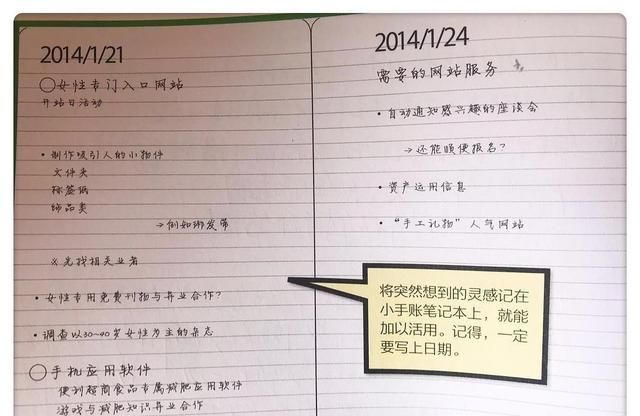 2014/1/21
○女性专门入口网站
开站日活动
• 制作吸引人的小物件
文件夹
标签纸
饰品类
→例如绑发带
※先找相关业者
• 女性专用免费刊物与异业合作?
• 调查以30~40岁女性为主的杂志
○手机应用软件
便利超商食品专属减肥应用软件
游戏与减肥知识异业合作
2014/1/24
需要的网站服务
• 自动通知感兴趣的座谈会
→还能顺便报名?
• 资产运用信息
• “手工礼物”人气网站
将突然想到的灵感记在
小手账笔记本上,就能
加以活用。记得,一定
要写上日期。